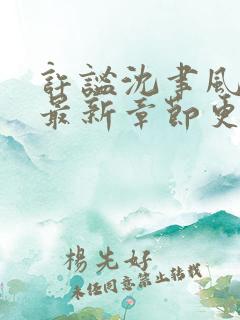 許謐沈聿風
最新章節更
楊先好
未經同意禁止轉載